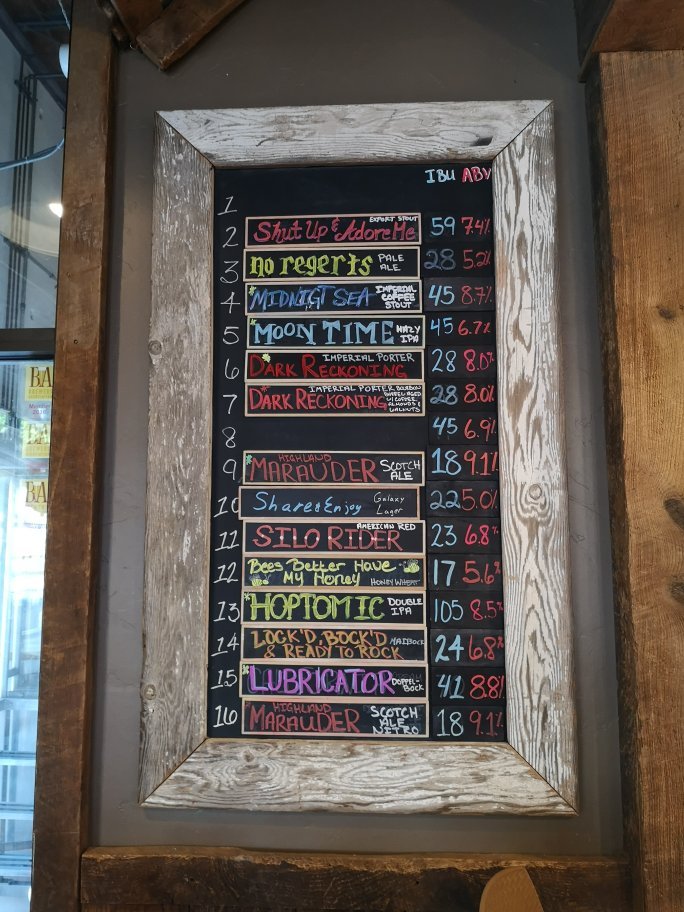 IBU ABV
1
2 Shut Up & Adore Me EXPORT STOUT 59 7.4%
3 no regerts PALE ALE 28 5.2%
4 MIDNIGT SEA IMPERIAL COFFEE STOUT 45 8.7%
5 MOON TIME HAZY IPA 45 6.7%
6 DARK RECKONING IMPERIAL PORTER 28 8.0%
7 DARK RECKONING IMPERIAL PORTER BOURBON BARREL AGED W/ COFFEE, ALMONDS & WALNUTS 28 8.0%
8 45 6.9%
9 HIGHLAND MARAUDER SCOTCH ALE 18 9.1%
10 Share & Enjoy Galaxy Lager 22 5.0%
11 SILO RIDER AMERICAN RED 23 6.8%
12 Bees Better Have My Honey HONEY WHEAT 17 5.6%
13 HOPTOMIC DOUBLE IPA 105 8.5%
14 LOCK'D, BOCK'D, & READY TO ROCK MAIBOCK 24 6.8%
15 LUBRICATOR DOPPEL-BOCK 41 8.8%
16 HIGHLAND MARAUDER SCOTCH ALE NITRO 18 9.1%
BA
BA
BA